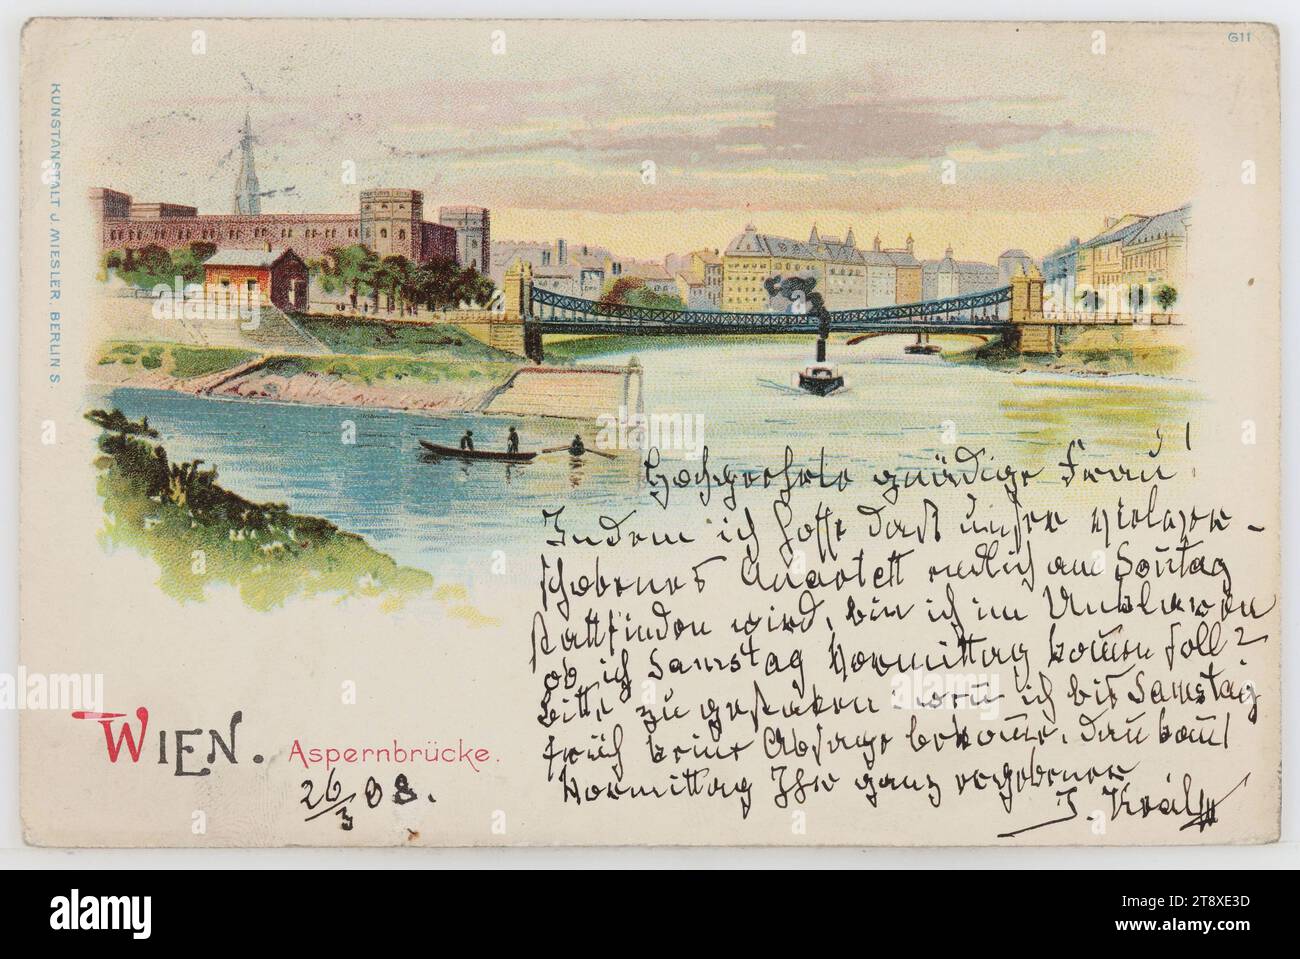 G11
KUNSTANSTALT J. MIESLER BERLIN S.
Hochgeehrte gnädige Frau!
Indem ich hoffe daß unser vielver-
schobenes Quartett endlich am Sontag
stattfinden wird, bin ich im Unklaren
ob ich Samstag Vormittag kom̄en soll?
Bitte zu gestatten wen̄ ich bis Samstag
früh keine Absage bekom̄e, dan̄ kom̄t
Vormittag Ihr ganz ergebener
J. Král
WIEN. Aspernbrücke.
26/3 98.
alamy
Image ID: 2T8XE3D
www.alamy.com